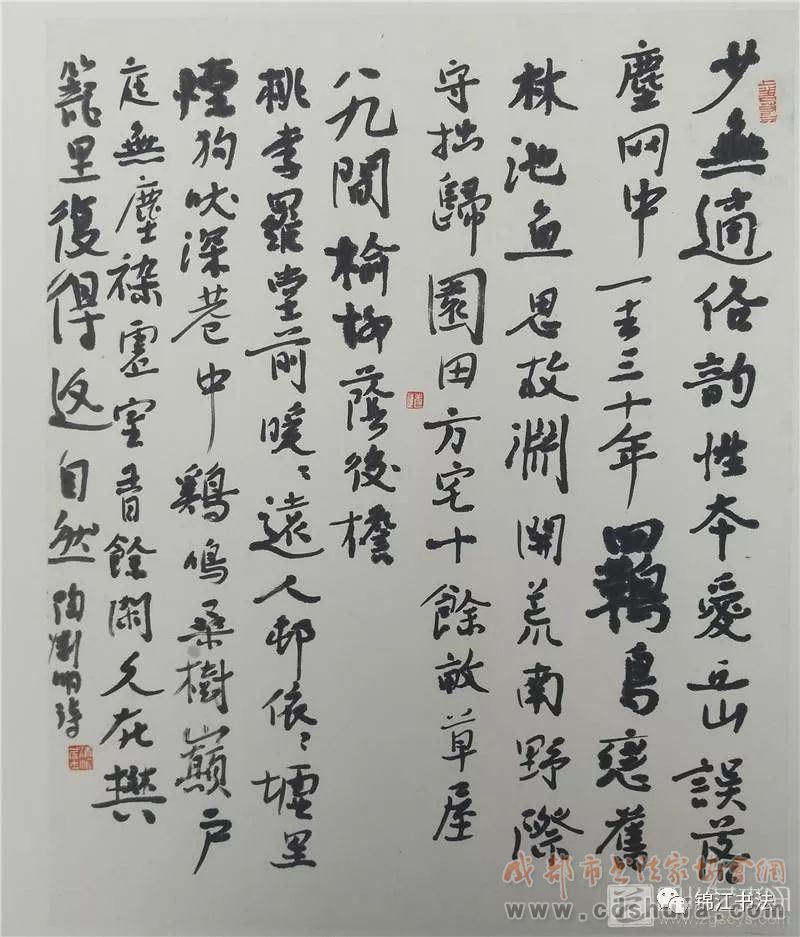 少無適俗韵性本愛丘山誤落
塵网中一去三十年羈鳥戀舊
林池魚思故淵開荒南野際
守拙歸園田方宅十餘畝草屋
八九間榆柳蔭後檐
桃李羅堂前暖〻遠人邨依〻墟里
煙狗吠深巷中鷄鳴桑樹巔户
庭無塵襍虛室有餘閑久在樊
籠里復得返自然陶淵明詩
成都市书法家协会網
www.cdshufa.com
锦江书法